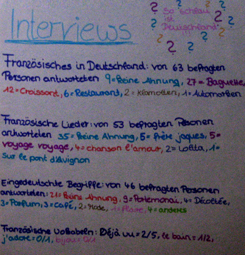 Interviews
So ?
in
Deutschland!
Französisches in Deutschland: von 63 befragten
Personen antworteten 9=Keine Ahnung, 27=Baguette,
12=Croissant, 6=Restaurant, 2=Klamotten, 1=Automarken
Französische Lieder: von 53 befragten Personen
antworteten 35=Keine Ahnung, 5=Frère jaques, 5=
voyage voyage, 4=chanson l'amour, 2=Lolita, 1=
Sur le pont d'Avignon
Eingedeutschte Begriffe: von 46 befragten Personen
antworteten: 21=Keine Ahnung, 9=Portemonai, 4=
3=Parfum, 3=Café, 2= 1= 4=anders
Französische Vokabeln: Déjà vu=2/5, le bain=1/2,
j'adore=0/1, bijou=